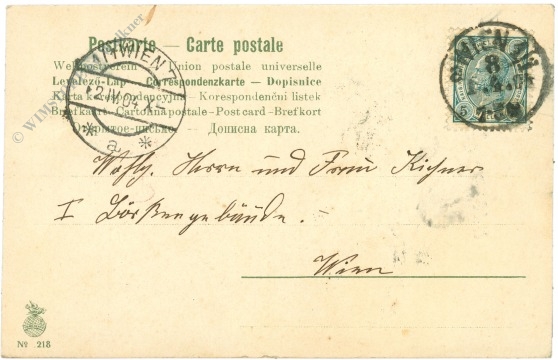 Postkarte — Carte postale
Weltpostverein — Union postale universelle
Levelező-Lap — Correspondenzkarte — Dopisnice
Karta korespondencyjna — Korespondenční listek
Briefkarte — Cartonna postale — Post card — Brefkort
Открытое письмо — Дописна карта.
WIEN
2.IV.04
* a *
WIEN
8
Wohlg. Herrn und Frau Kirchner
I Börsengebäude.
Wien
No 218